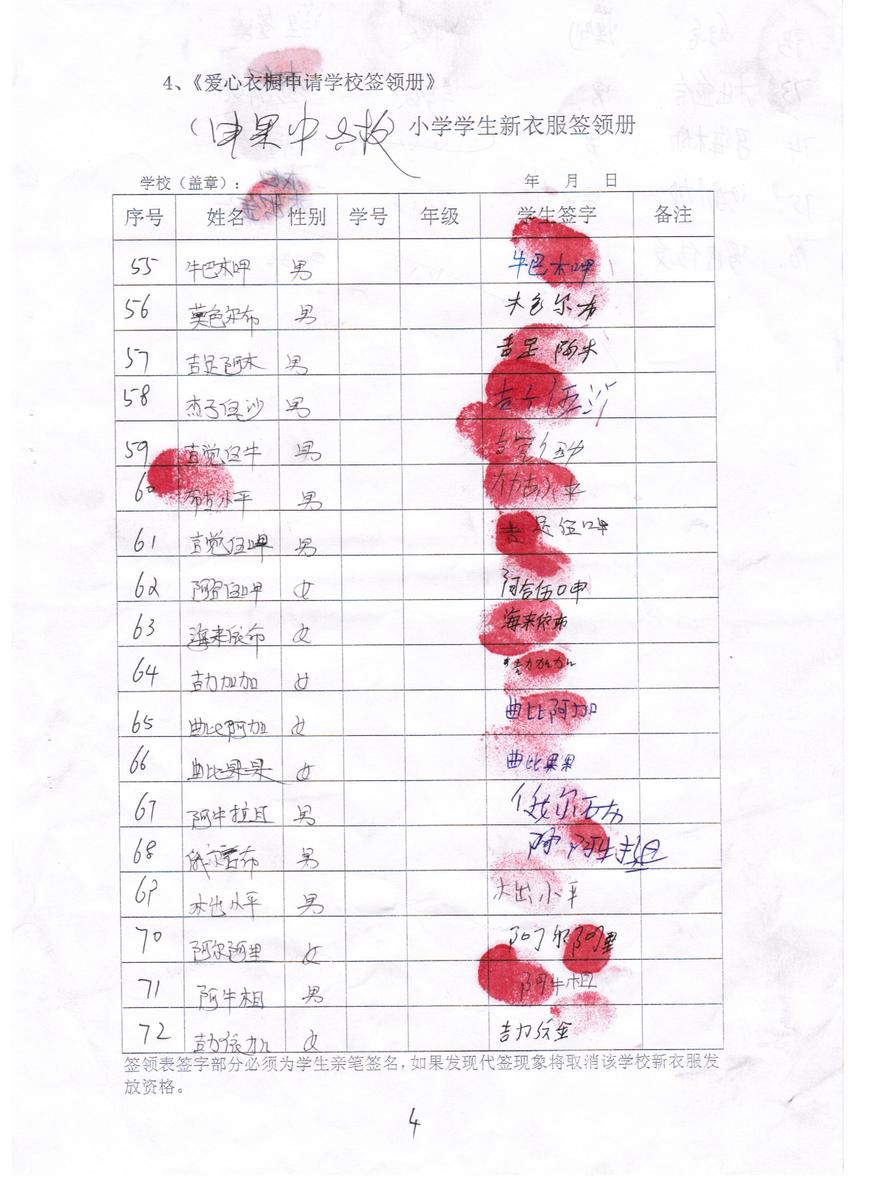 4、《爱心衣橱申请学校签领册》
（ 果中心校）小学学生新衣服签领册
学校（盖章）： 年 月 日
序号 姓名 性别 学号 年级 学生签字 备注
55 牛巴木呷 男 牛巴木呷
56 莫色尔布 男 木色尔布
57 吉足阿木 男 吉足阿木
58 杰子伍沙 男
59 吉觉伍牛 男
60 布吉小平 男
61 吉觉伍呷 男 吉足伍呷
62 阿合伍呷 女 阿合伍呷
63 海来依布 女 海来依布
64 吉力加加 女 吉力加加
65 曲比阿加 女 曲比阿加
66 曲比果果 女 曲比果果
67 阿牛拉且 男
68 男
69 木出小平 男 木出小平
70 阿尔阿里 女 阿尔阿里
71 阿牛相 男 阿牛相
72 吉力依加 女 吉力
签领表签字部分必须为学生亲笔签名，如果发现代签现象将取消该学校新衣服发
放资格。
4